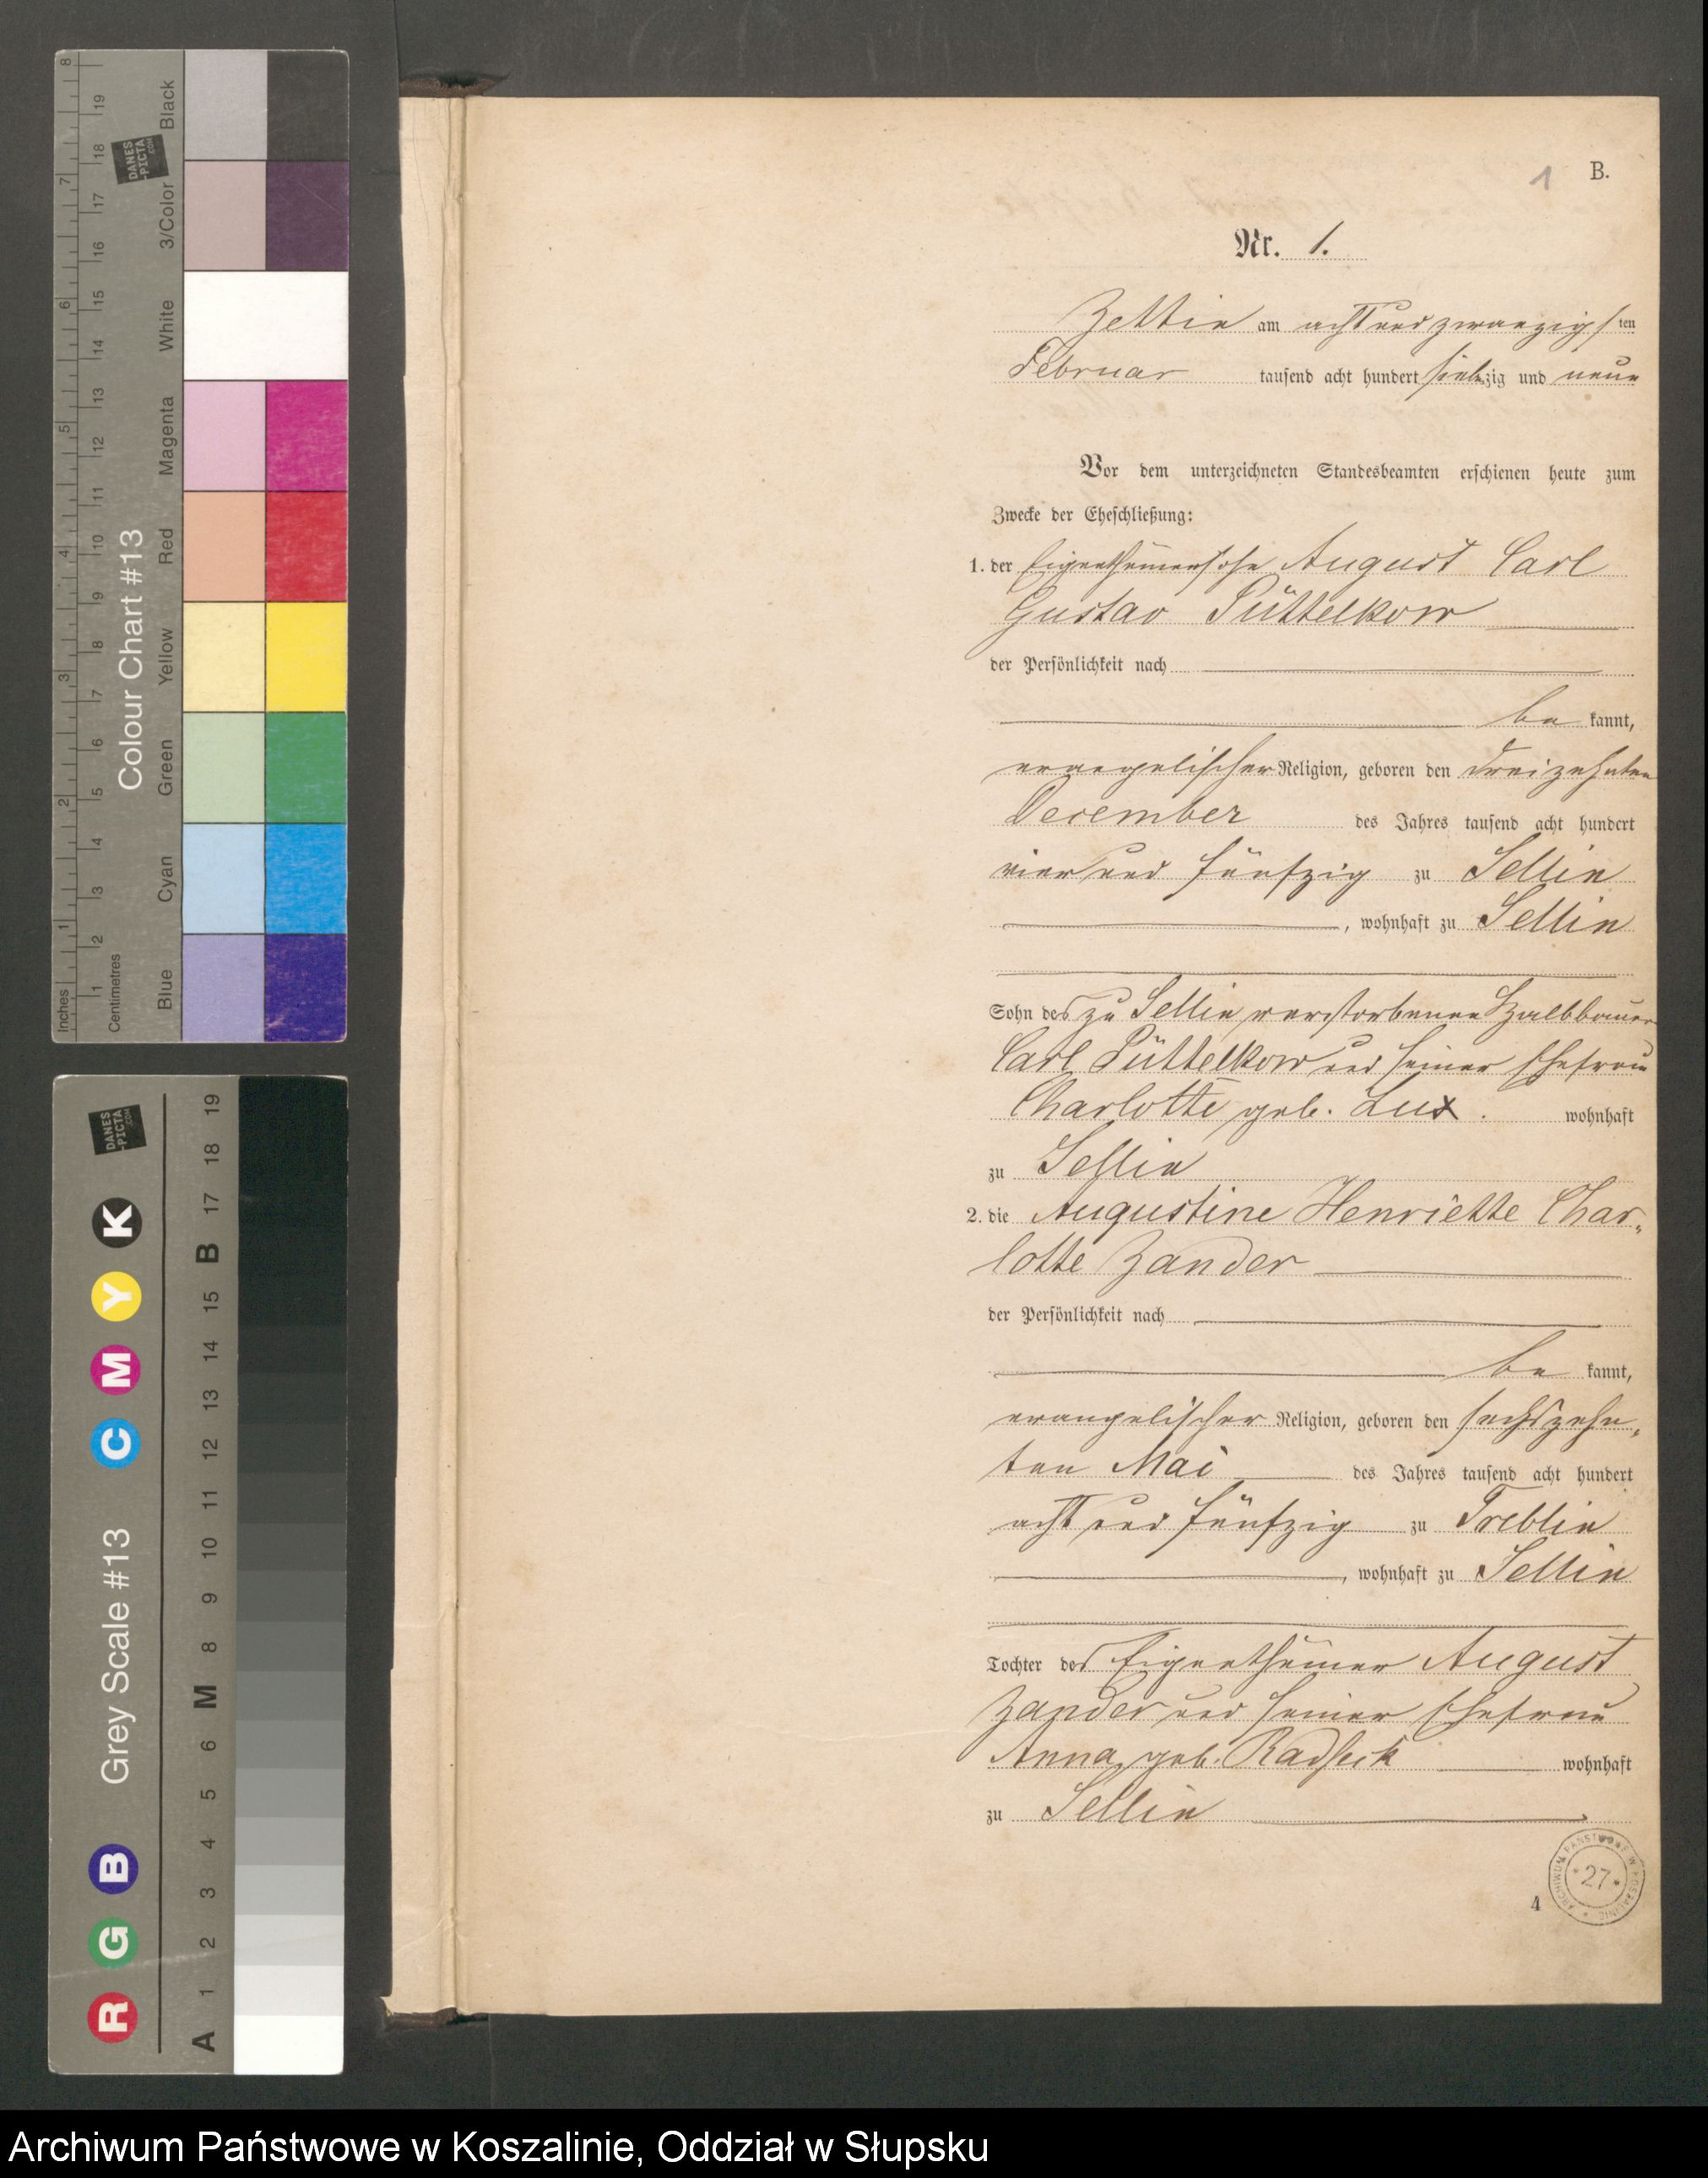 B.
1
Nr. 1.
Zettin am acht und zwanzigsten
Februar tausend acht hundert siebzig und neun
Vor dem unterzeichneten Standesbeamten erschienen heute zum
Zwecke der Eheschließung:
1. der Eigenthümersohn August Carl
Gustav Püttelkow
der Persönlichkeit nach
bekannt,
evangelischer Religion, geboren den dreizehnten
December des Jahres tausend acht hundert
vier und fünfzig zu Sellin
, wohnhaft zu Sellin
Sohn des zu Sellin verstorbenen Halbbauer
Carl Püttelkow und seiner Ehefrau
Charlotte geb. Lux. wohnhaft
zu Sellin
2. die Augustine Henriette Char„
lotte Zander
der Persönlichkeit nach
bekannt,
evangelischer Religion, geboren den sechszehn„
ten Mai des Jahres tausend acht hundert
acht und fünfzig zu Treblin
, wohnhaft zu Sellin
Tochter des Eigenthümer August
Zander und seiner Ehefrau
Anna geb. wohnhaft
zu Sellin
4
ARCHIWUM PAŃSTWOWE W KOSZALINIE
* 27 *
Colour Chart #13
Inches 1 2 3 4 5 6 7 8
Centimetres 1 2 3 4 5 6 7 8 9 10 11 12 13 14 15 16 17 18 19
Blue Cyan Green Yellow Red Magenta White 3/Color Black
DANES
-PICTA
.COM
Grey Scale #13
R G B C M Y K
A 1 2 3 4 5 6 M 8 9 10 11 12 13 14 15 B 17 18 19
DANES
-PICTA
.COM
Archiwum Państwowe w Koszalinie, Oddział w Słupsku